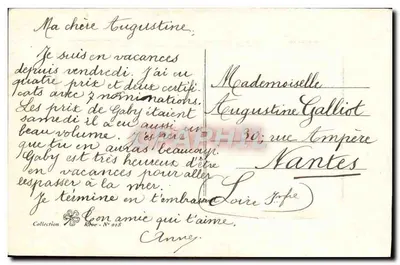 Ma chère Augustine.
Je suis en vacances
depuis vendredi. J'ai eu
quatre prix et deux certifi
cats avec 7 nominations.
Les prix de Gaby étaient
samedi il a eu aussi un
beau volume. Espère
que tu en auras beaucoup.
Gaby est très heureux d'être
en vacances pour aller
respasser à la mer.
Je termine en t'embrassant
Ton amie qui t'aime.
Anney
Mademoiselle
Augustine Galliot
30, rue Ampère
Nantes
Loire Infre
Collection Rêve - No 218